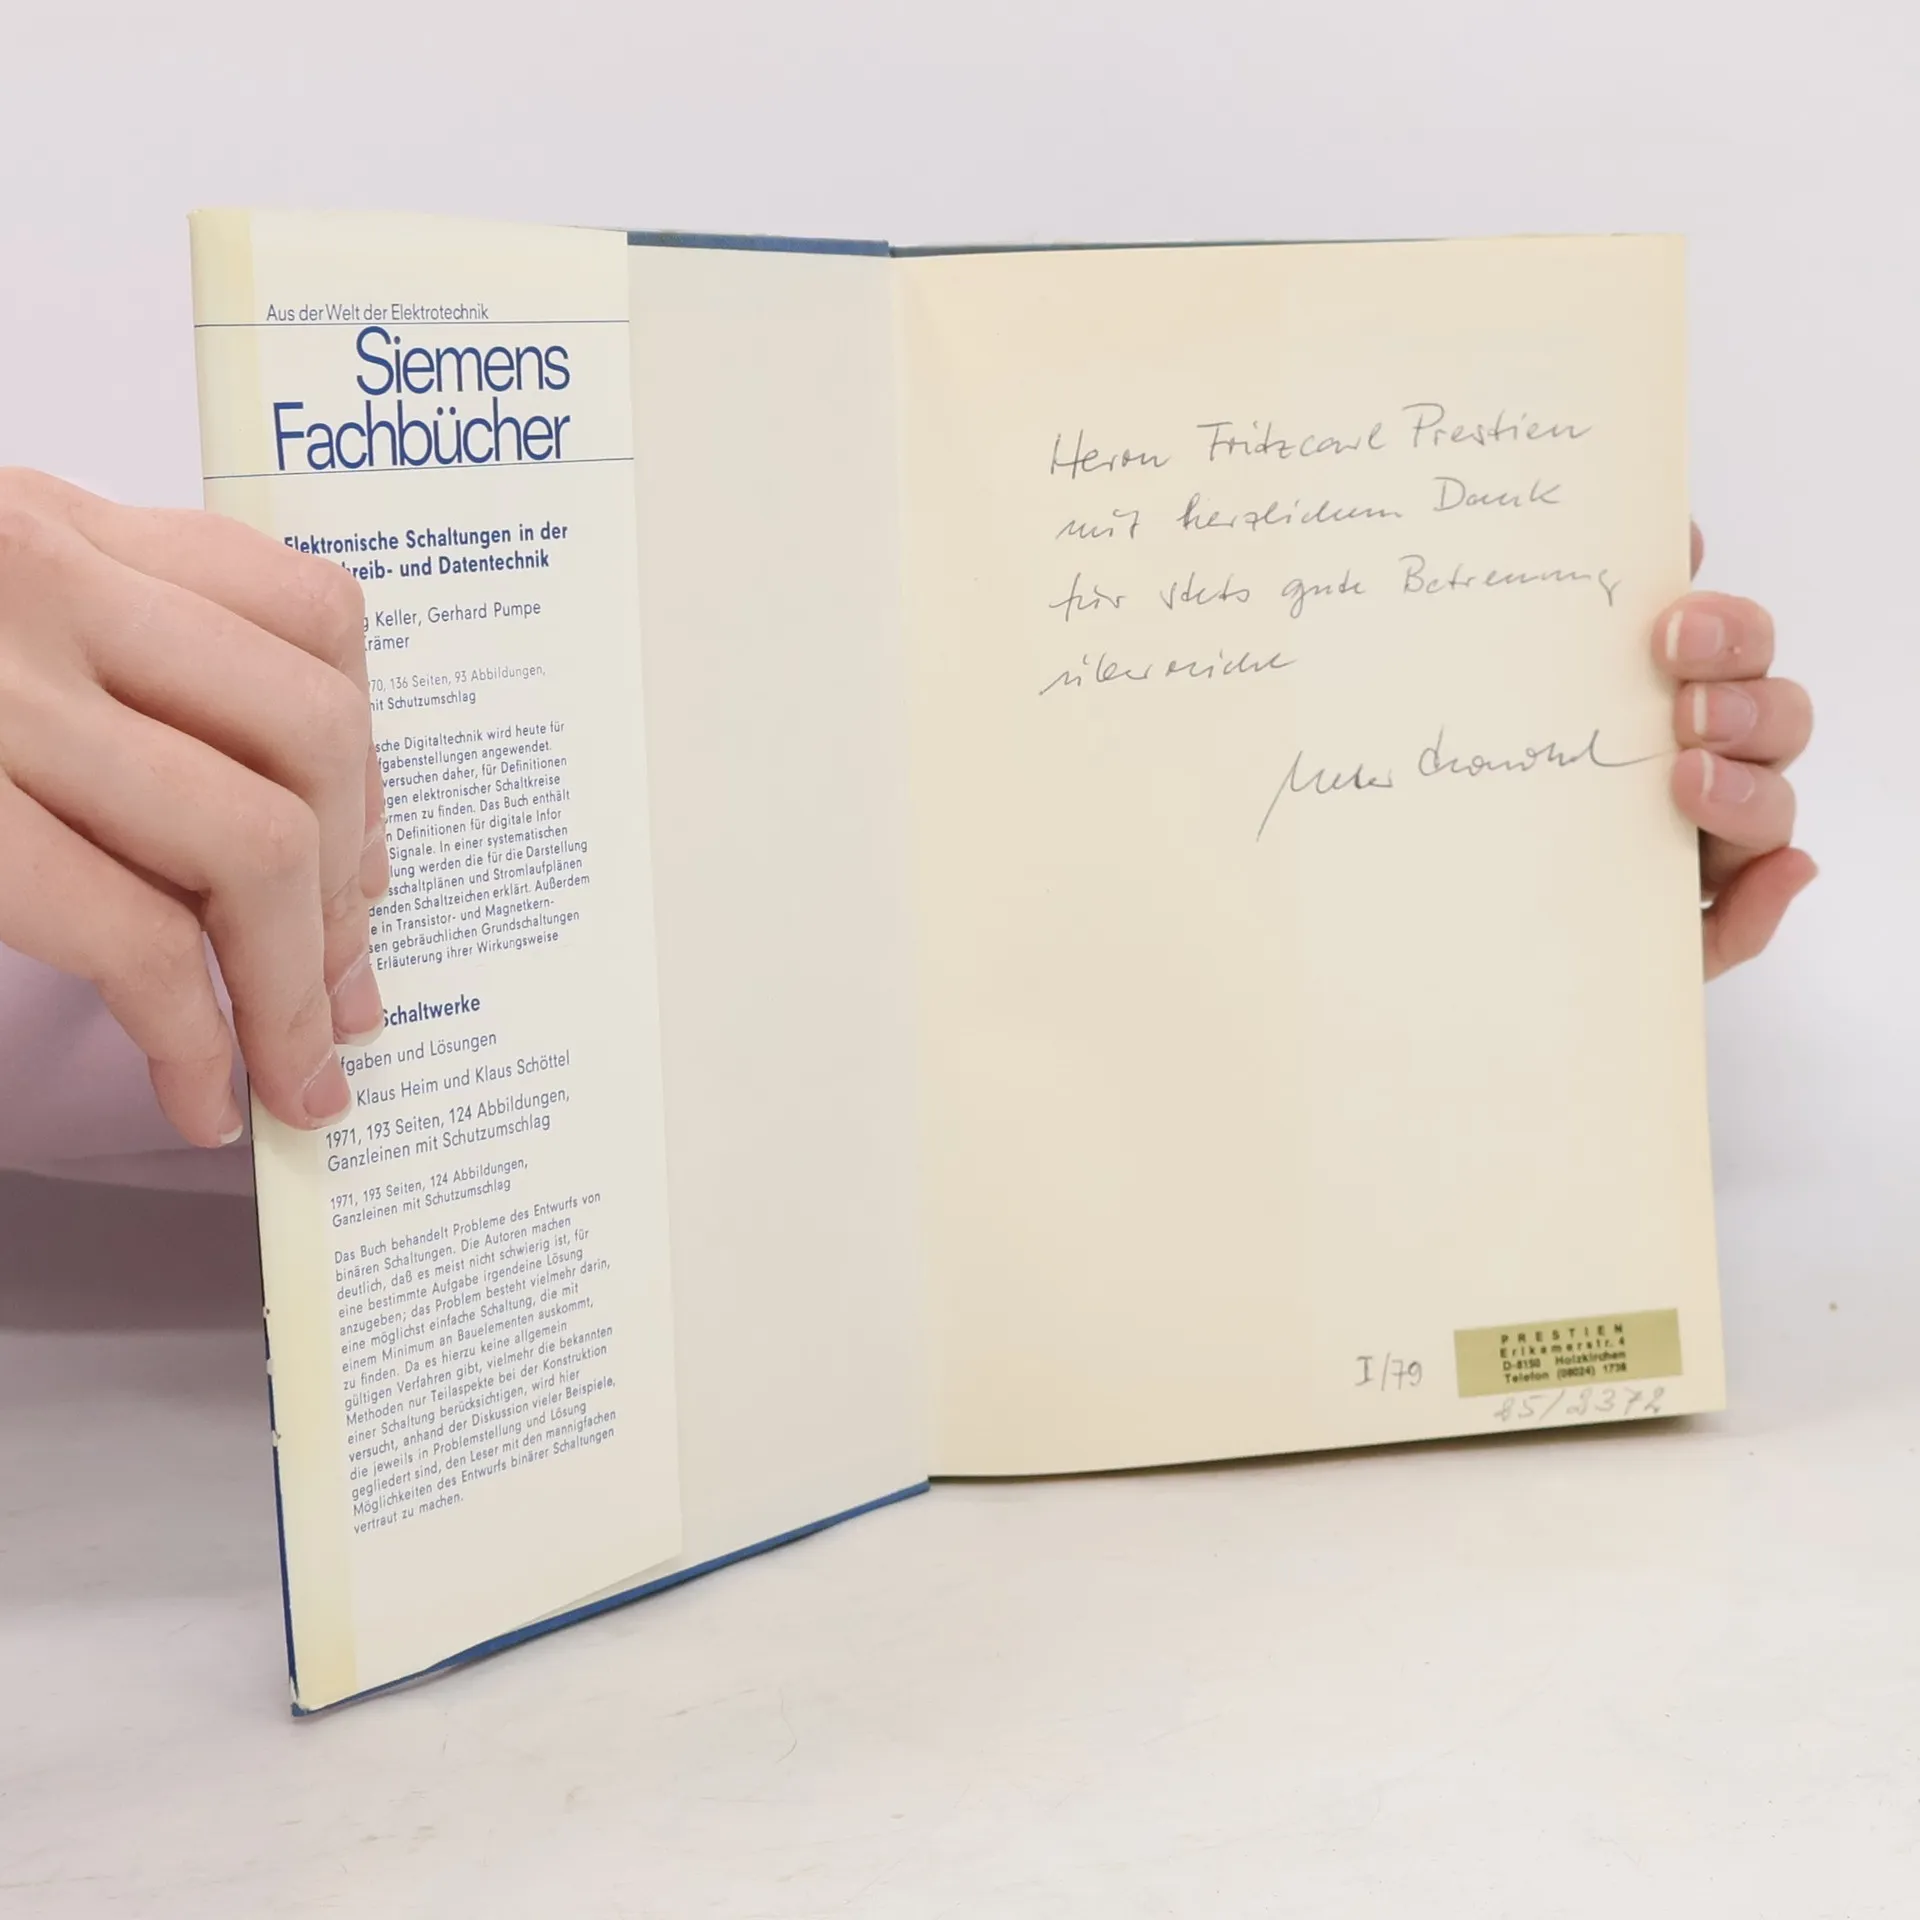 Aus der Welt der Elektrotechnik
Siemens
Fachbücher
Elektronische Schaltungen in der
hreib- und Datentechnik
g Keller, Gerhard Pumpe
Krämer
70, 136 Seiten, 93 Abbildungen,
mit Schutzumschlag
sche Digitaltechnik wird heute für
fgabenstellungen angewendet.
versuchen daher, für Definitionen
gen elektronischer Schaltkreise
rmen zu finden. Das Buch enthält
n Definitionen für digitale Infor
Signale. In einer systematischen
lung werden die für die Darstellung
sschaltplänen und Stromlaufplänen
denden Schaltzeichen erklärt. Außerdem
e in Transistor- und Magnetkern-
sen gebräuchlichen Grundschaltungen
r Erläuterung ihrer Wirkungsweise
Schaltwerke
fgaben und Lösungen
Klaus Heim und Klaus Schöttel
1971, 193 Seiten, 124 Abbildungen,
Ganzleinen mit Schutzumschlag
1971, 193 Seiten, 124 Abbildungen,
Ganzleinen mit Schutzumschlag
Das Buch behandelt Probleme des Entwurfs von
binären Schaltungen. Die Autoren machen
deutlich, daß es meist nicht schwierig ist, für
eine bestimmte Aufgabe irgendeine Lösung
anzugeben; das Problem besteht vielmehr darin,
eine möglichst einfache Schaltung, die mit
einem Minimum an Bauelementen auskommt,
zu finden. Da es hierzu keine allgemein
gültigen Verfahren gibt, vielmehr die bekannten
Methoden nur Teilaspekte bei der Konstruktion
einer Schaltung berücksichtigen, wird hier
versucht, anhand der Diskussion vieler Beispiele,
die jeweils in Problemstellung und Lösung
gegliedert sind, den Leser mit den mannigfachen
Möglichkeiten des Entwurfs binärer Schaltungen
vertraut zu machen.
Herrn Fritzcarl Prestien
mit herzlichem Dank
für stets gute Betreuung
überreicht
I/79
PRESTIEN
Erlkamerstr. 4
D-8150 Holzkirchen
Telefon (08024) 1738
85/2372